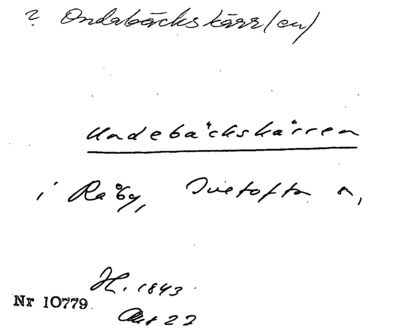 ? Ondabäckskärr(en)
Undebäckskärren
i Råby, Ivetofta s,
H. 1843
Akt 22
Nr 10779